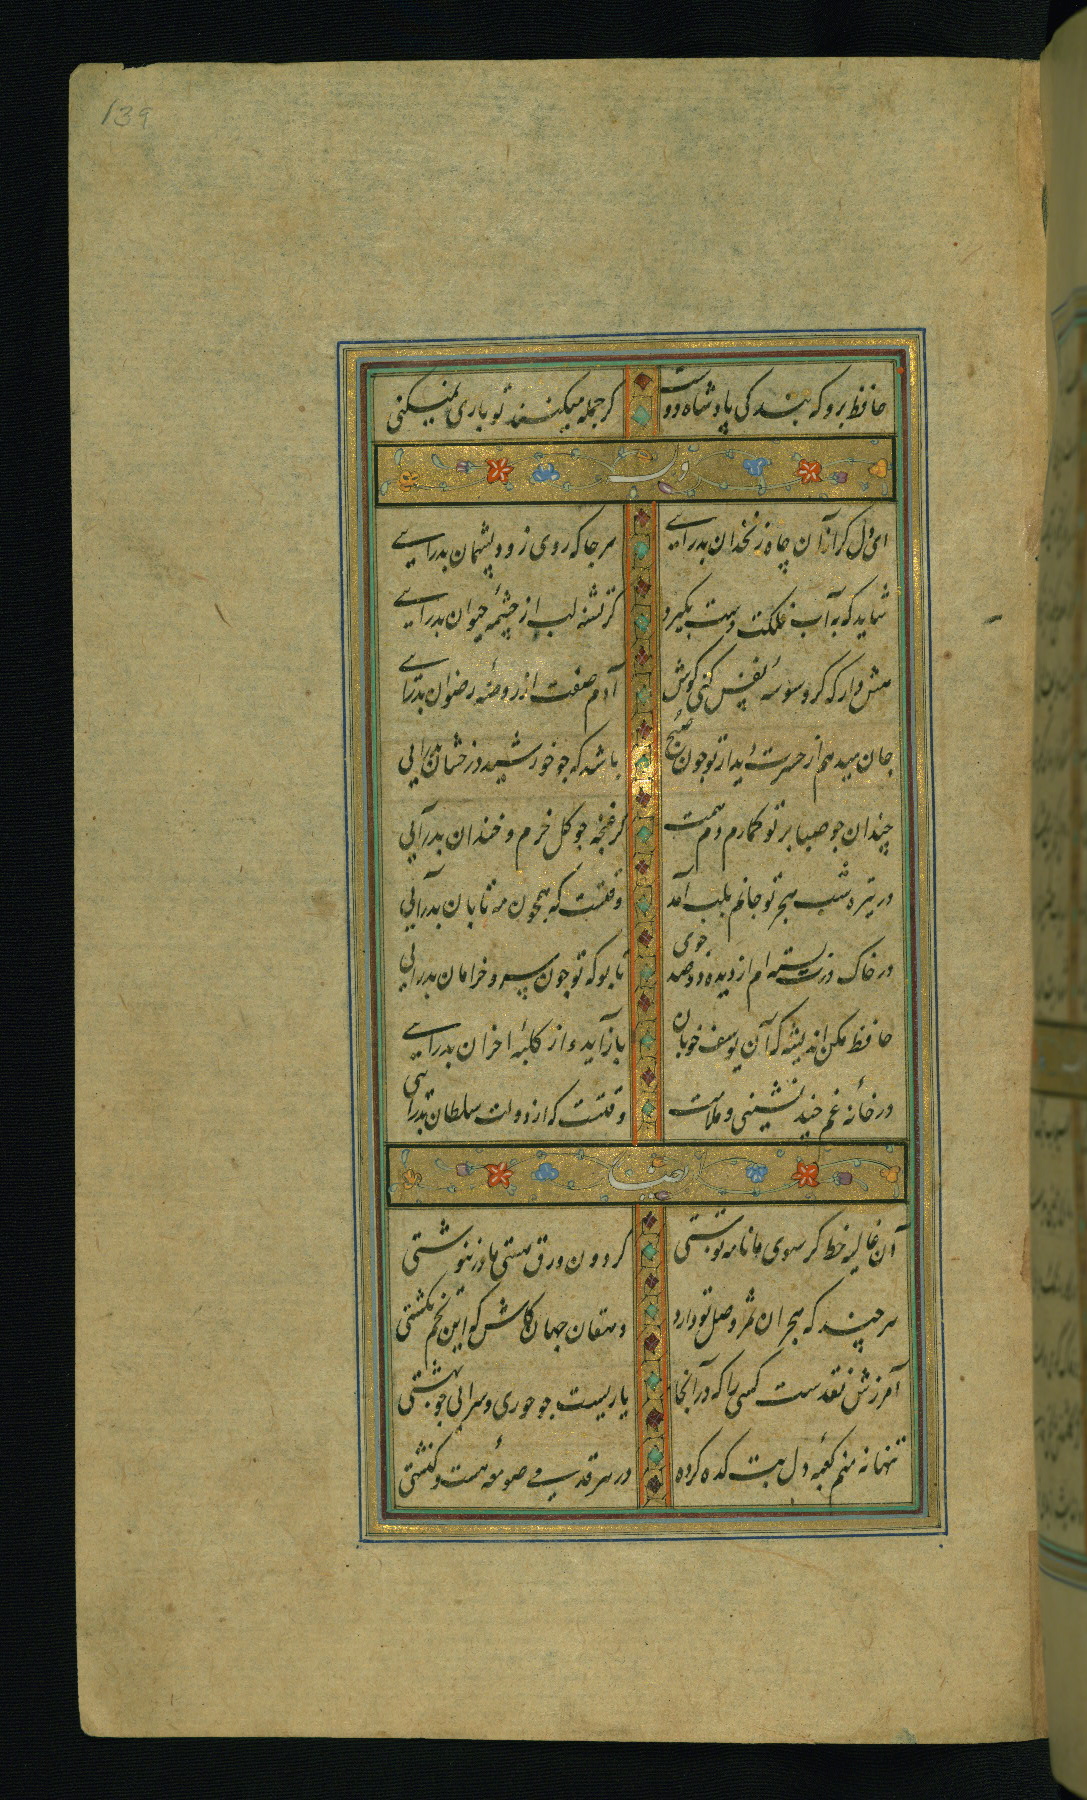 139
حافظ برو که بندگی پادشاه دوست
گر جمله میکنند تو باری نمیکنی
وله
ای دل گر ازآن چاه زنخدان بدرآیی
هر جا که روی زود پشیمان بدرآیی
شاید که به آب فلکت دست بگیرد
گر تشنه لب از چشمهٔ حیوان بدرآیی
هش دار که گر وسوسهٔ نفس کنی گوش
آدم صفت از روضهٔ رضوان بدرآیی
جان میدهم از حسرت دیدار تو چون صبح
باشد که چو خورشید درخشان بدرآیی
چندان چو صبا بر تو گمارم دم همت
کز غنچه چو گل خرم و خندان بدرآیی
در تیره شب هجر تو جانم بلب آمد
وقتست که همچون مه تابان بدرآیی
در خاک درت بسته‌ام از دیده دو صد جوی
تا بو که تو چون سرو خرامان بدرآیی
حافظ مکن اندیشه که آن یوسف خوبان
باز آید و از کلبهٔ احزان بدرآیی
در خانهٔ غم چند نشینی و ملامت
وقتست که از دولت سلطان بدرآیی
ایضا
آن غالیه خط گر سوی ما نامه نوشتی
گردون ورق هستی ما در ننوشتی
هر چند که هجران ثمر وصل تو دارد
دهقان جهان کاش که این تخم نکشتی
آمرزش نقدست کسی را که در آنجا
یاریست چو حوری و سرایی چو بهشتی
تنها نه منم کعبهٔ دل بت کده کرده
در هر قدمی صومعهٔ هست و کنشتی